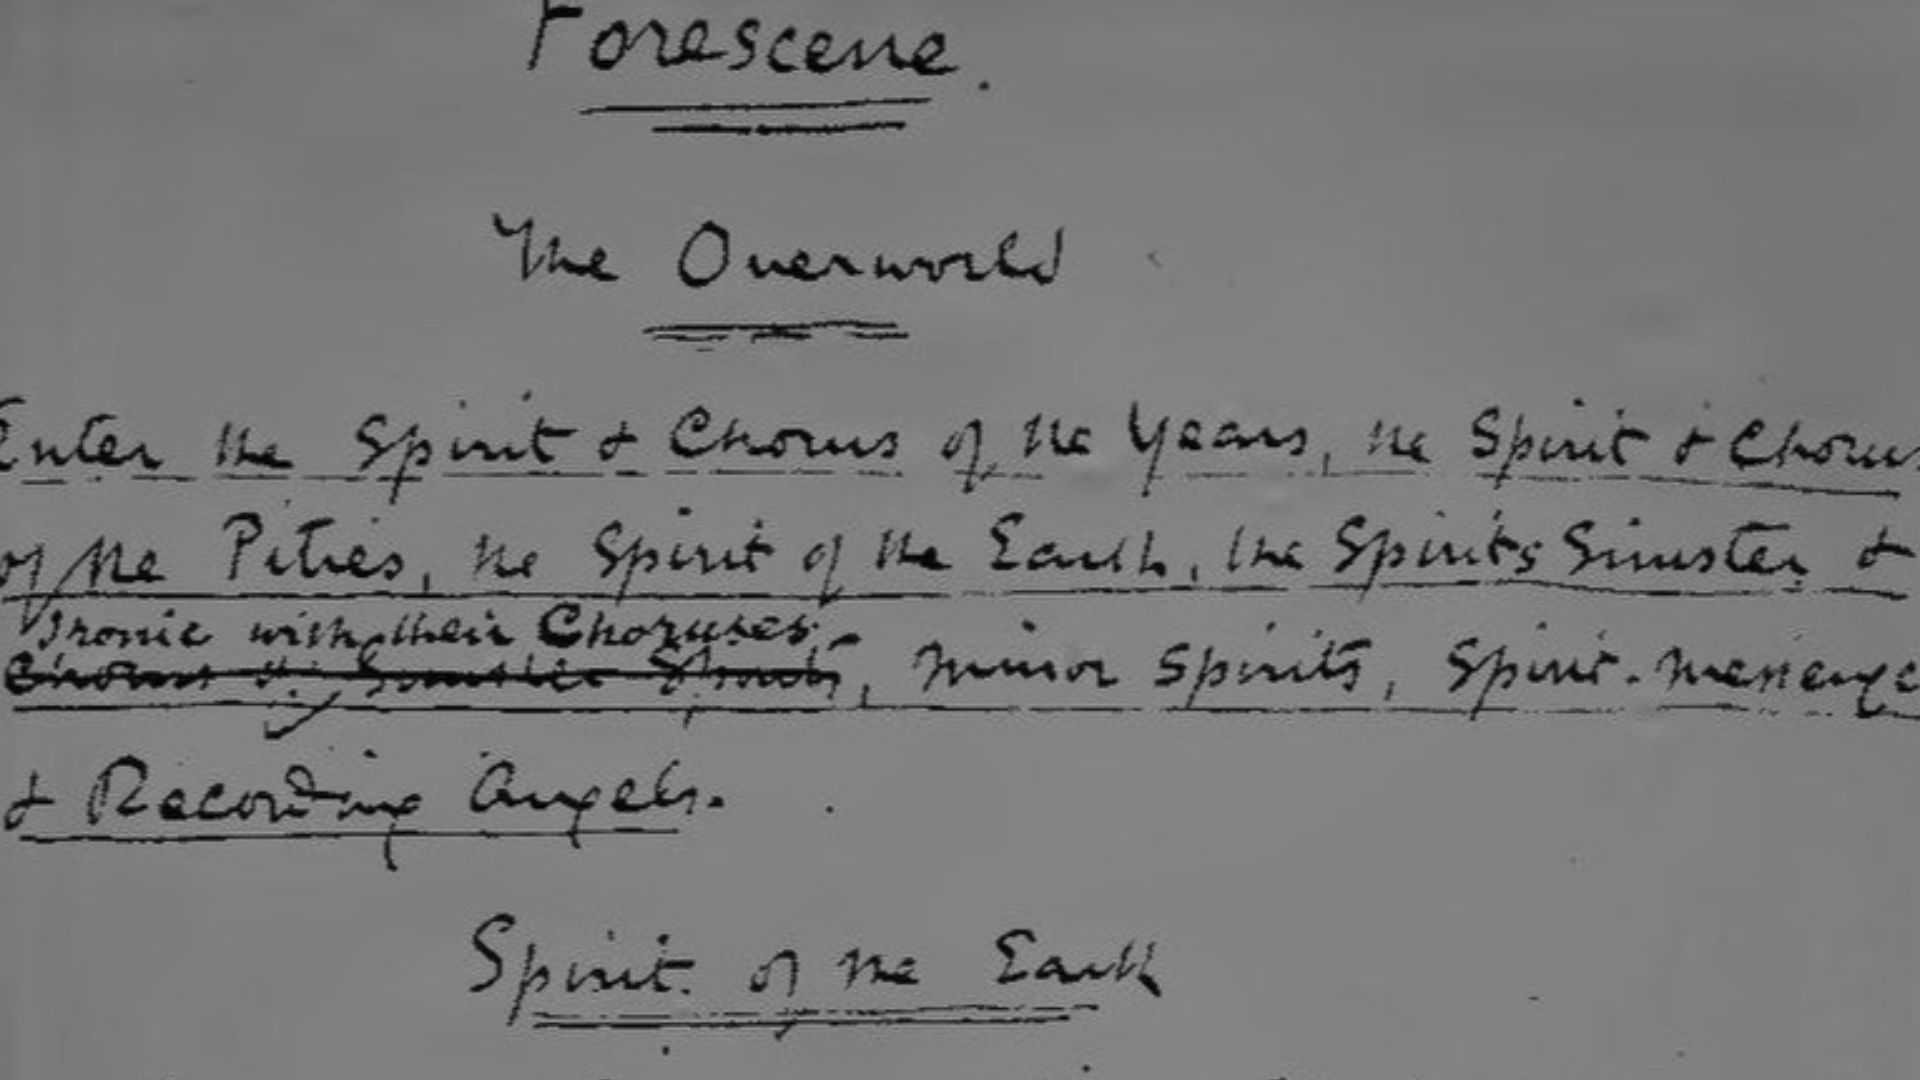 Forescene.
The Overworld
Enter the Spirit & Chorus of the Years, the Spirit & Chorus
of the Pities, the Spirit of the Earth, the Spirits Sinister &
Ironic with their Choruses,
Chorus of Sinister Spirits, minor Spirits, Spirit-Messenge
& Recording Angels.
Spirit of the Earth